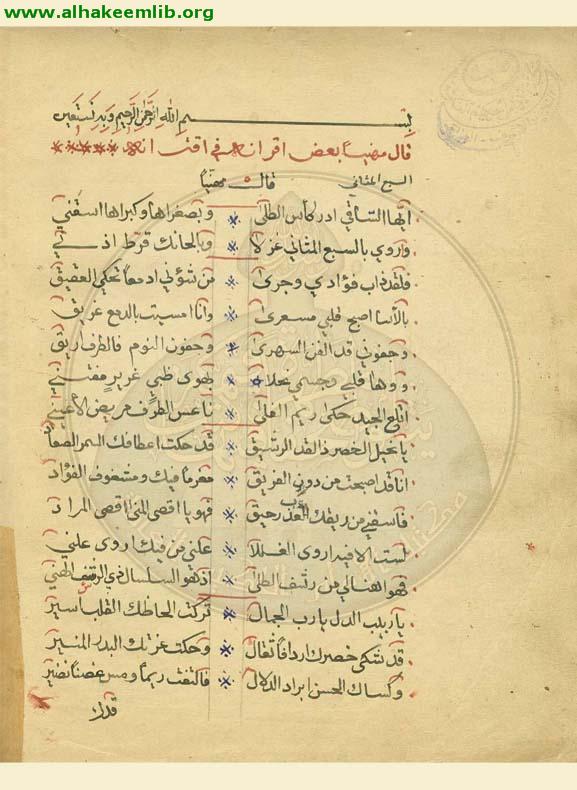 www.alhakeemlib.org
بسم الله الرحمن الرحيم وبه نستعين
قال مهنيا بعض اقرانه في اقترانه
السبع المثاني قال مهنيا
ايها الساقي ادر كأس الطلى * وبصغراها وكبراها اسقني
واروي بالسبع المثاني غزلا * وبالحانك قرط اذني
فلقد ذاب فؤادي وجرى * من شؤني ادمعا تحكي العقيق
بالأسا اصبح قلبي مسعرى * وانا امسيت بالدمع غريق
وجفوني قد الفن السهرى * وجفون النوم فالطرف اريق
ووها قلبي وجسمي نحلا * لهوى ظبي غرير مفتني
اتلع الجيد حكى ريم الفلى * ناعس الطرف مريض الأعين
يا نحيل الخصر ذا القد الرشيق * قد حكت اعطافك السمر الصعاد
انا قد اصبحت من دون الفريق * مغرما فيك ومشغوف الفؤاد
فاسقني من ريقك العذب رحيق * فهو يا اقصى المنى اقصى المراد
لست الا فيه اروى الغللا * علني من فيك اروى علني
فهو اهنا لي من رشف الطلى * اذ هو السلسال ذي الرشف الهني
يا ربيب الدل يا رب الجمال * تركت الحاظك القلب اسير
قد شكى خصرك اردافا ثقال * وحكت غرتك البدر المنير
وكساك الحسن ابراد الدلال * فالتفت ريما ومس غصنا نضير
قدك